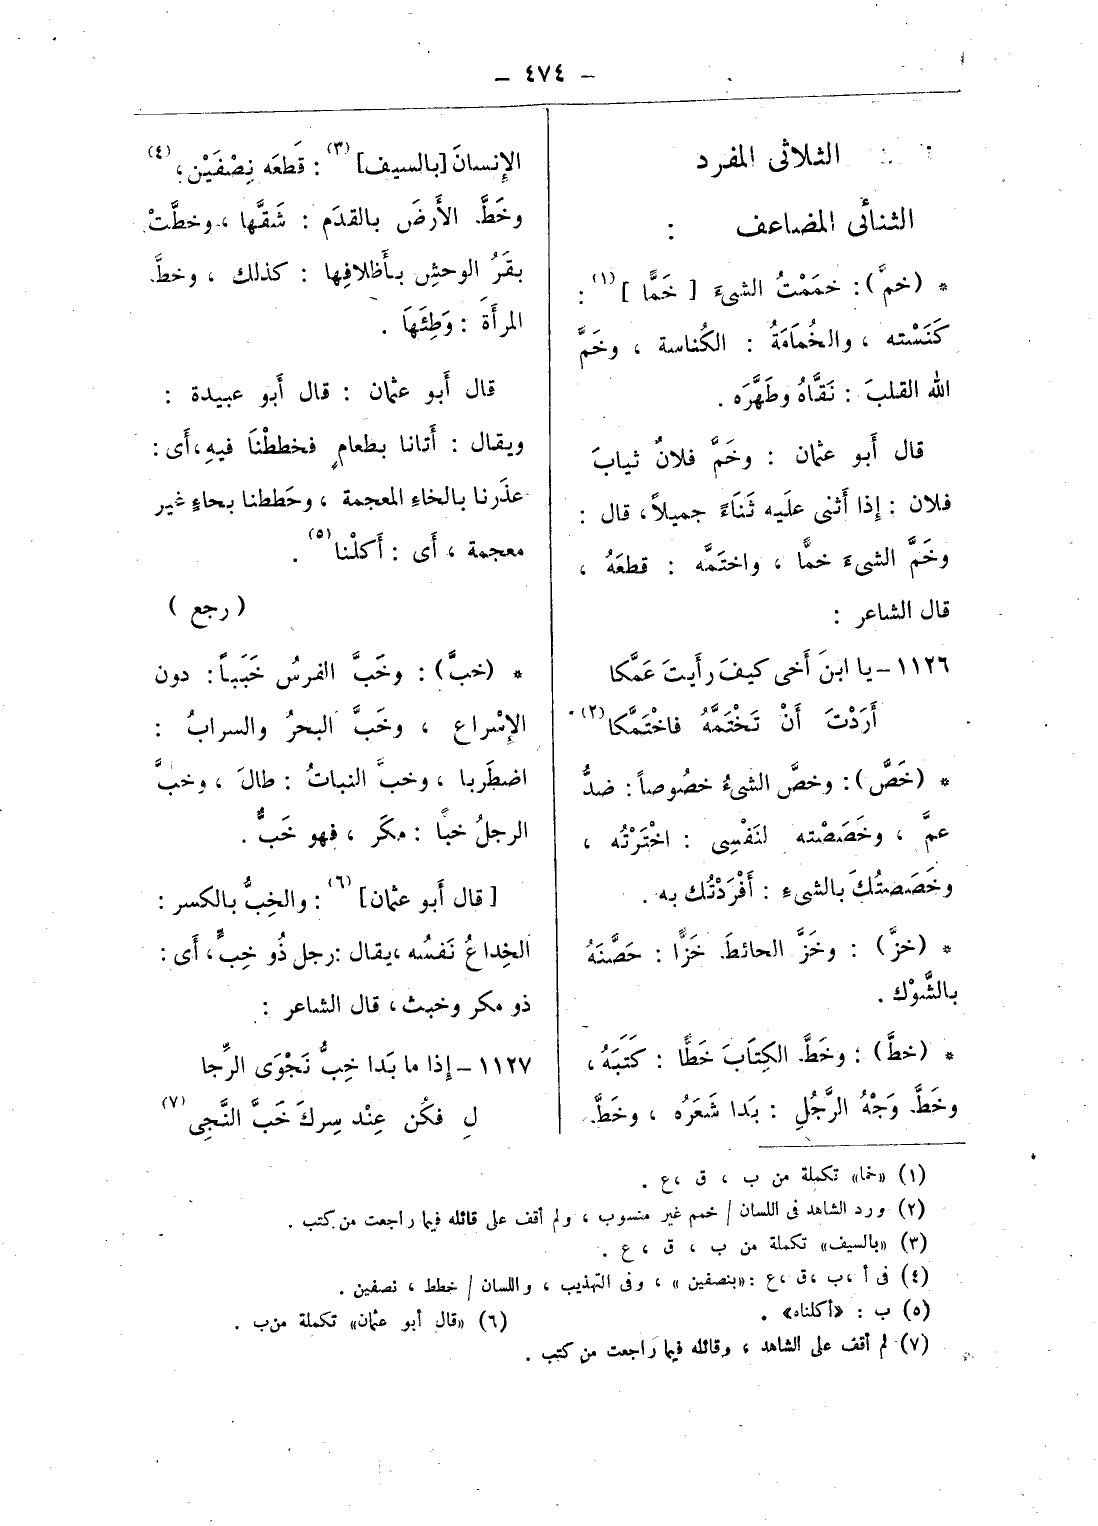 – ٤٧٤ –
الثلاثى المفرد
الثنائى المضاعف :
* (خمَّ): خمَمْتُ الشىءَ [ خَمًّا ](١) :
كَنَسْته ، والخُمَامَةُ : الكُناسة ، وخَمَّ
الله القلبَ : نَقَّاهُ وطَهَّرَه .
قال أَبو عثمان : وخَمَّ فلانٌ ثيابَ
فلان : إِذا أَثنى علَيه ثَنَاءً جميلاً، قال :
وخَمَّ الشىءَ خمًّا ، واختَمَّه : قطعَهُ ،
قال الشاعر :
١١٢٦ – يا ابنَ أَخى كيفَ رأَيتَ عَمَّكا
أَرَدْتَ أَنْ تَخْتَمَّهُ فاخْتَمَّكا(٢)
* (خَصَّ): وخصَّ الشىءُ خصُوصاً: ضدُّ
عمَّ ، وخَصَصْته لنَفْسِى : اخْتَرْتُه ،
وخَصَصتُكَ بالشىءِ : أَفْرَدْتُك به .
* (خزَّ) : وخَزَّ الحائطَ خَزًّا : حَصَّنَهُ
بالشَّوْك .
* (خطَّ) : وخَطَّ الكِتَابَ خَطًّا : كَتَبَهُ ،
وخَطَّ وَجْهُ الرَّجُلِ : بَدا شَعَرُه ، وخَطَّ
الإِنسانَ [بالسيف](٣) : قَطعَه نِصْفَيْن ؛(٤)
وخَطَّ الأَرضَ بالقدَم : شَقَّها ، وخطَّتْ
بقَرُ الوحشِ بأَظلافِها : كذلك ، وخطَّ
المرأَةَ : وَطِئَهَا .
قال أَبو عثمان : قال أَبو عبيدة :
ويقال : أَتانا بطعامٍ فخططْنَا فيهِ،أَى :
عذَرنا بالخاءِ المعجمة ، وحَططنا بحاءٍ غير
معجمة ، أَى : أَكلْنا(٥) .
( رجع )
* (خبَّ) : وخَبَّ الفرسُ خَبَباً : دون
الإِسْراع ، وخَبَّ البحرُ والسرابُ :
اضطَربا ، وخبَّ النباتُ : طالَ ، وخبَّ
الرجلُ خبًّا : مكَر ، فهو خَبٌّ .
[ قال أَبو عثمان](٦) : والخِبُّ بالكسر :
الخِداعُ نَفسُه ،يقال :رجل ذُو خِبٍّ، أَى :
ذو مكر وخبث ، قال الشاعر :
١١٢٧ – إِذا ما بَدا خِبُّ نَجْوَى الرِّجا
لِ فكُن عِنْد سِركَ خَبَّ النَّجِى(٧)
(١) «خما» تكملة من ب ، ق ،ع .
(٢) ورد الشاهد فى اللسان / خمم غير منسوب ، ولم أقف على قائله فيما راجعت من كتب .
(٣) «بالسيف» تكملة من ب ، ق ، ع .
(٤) فى أ ،ب ،ق ،ع :«بنصفين» ، وفى التهذيب ، واللسان / خطط ، نصفين .
(٥) ب : «أكلناه» . (٦) «قال أبو عثمان» تكملة من ب .
(٧) لم أقف على الشاهد ، وقائله فيما راجعت من كتب .